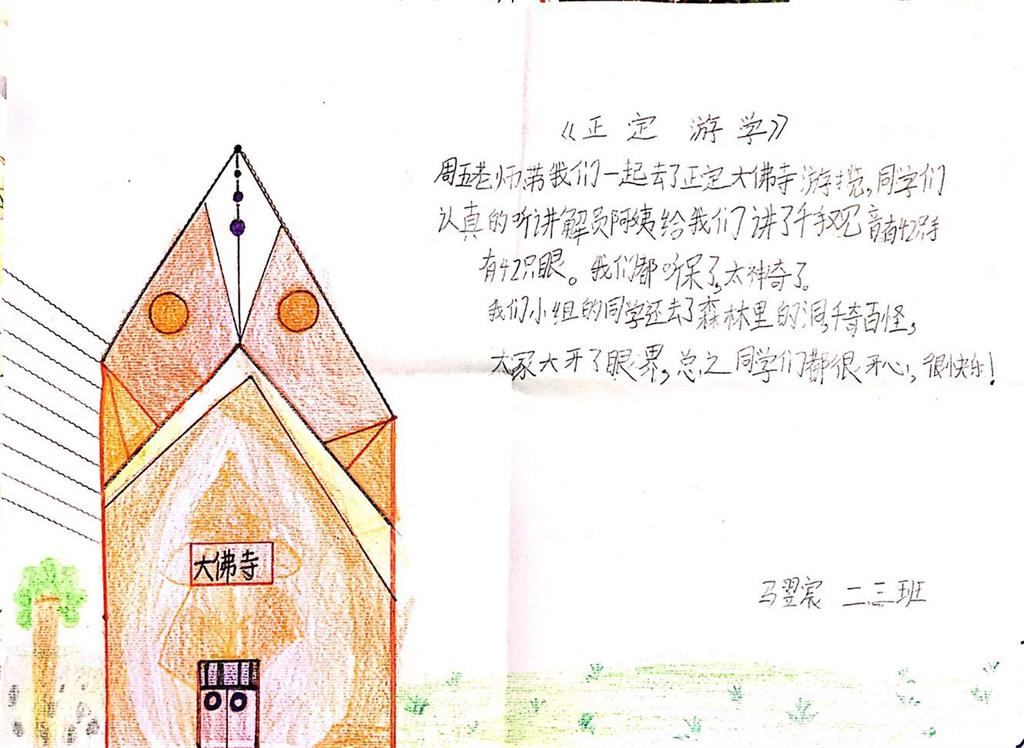 《正定 游学》
周五老师带我们一起去了正定大佛寺游览,同学们
认真的听讲解员阿姨给我们讲了千手观音有42只手
有42只眼。我们都听呆了,太神奇了。
我们小组的同学还去了森林里的洞,千奇百怪,
大家大开了眼界,总之同学们都很开心,很快乐!
大佛寺
马翌宸 二.三班